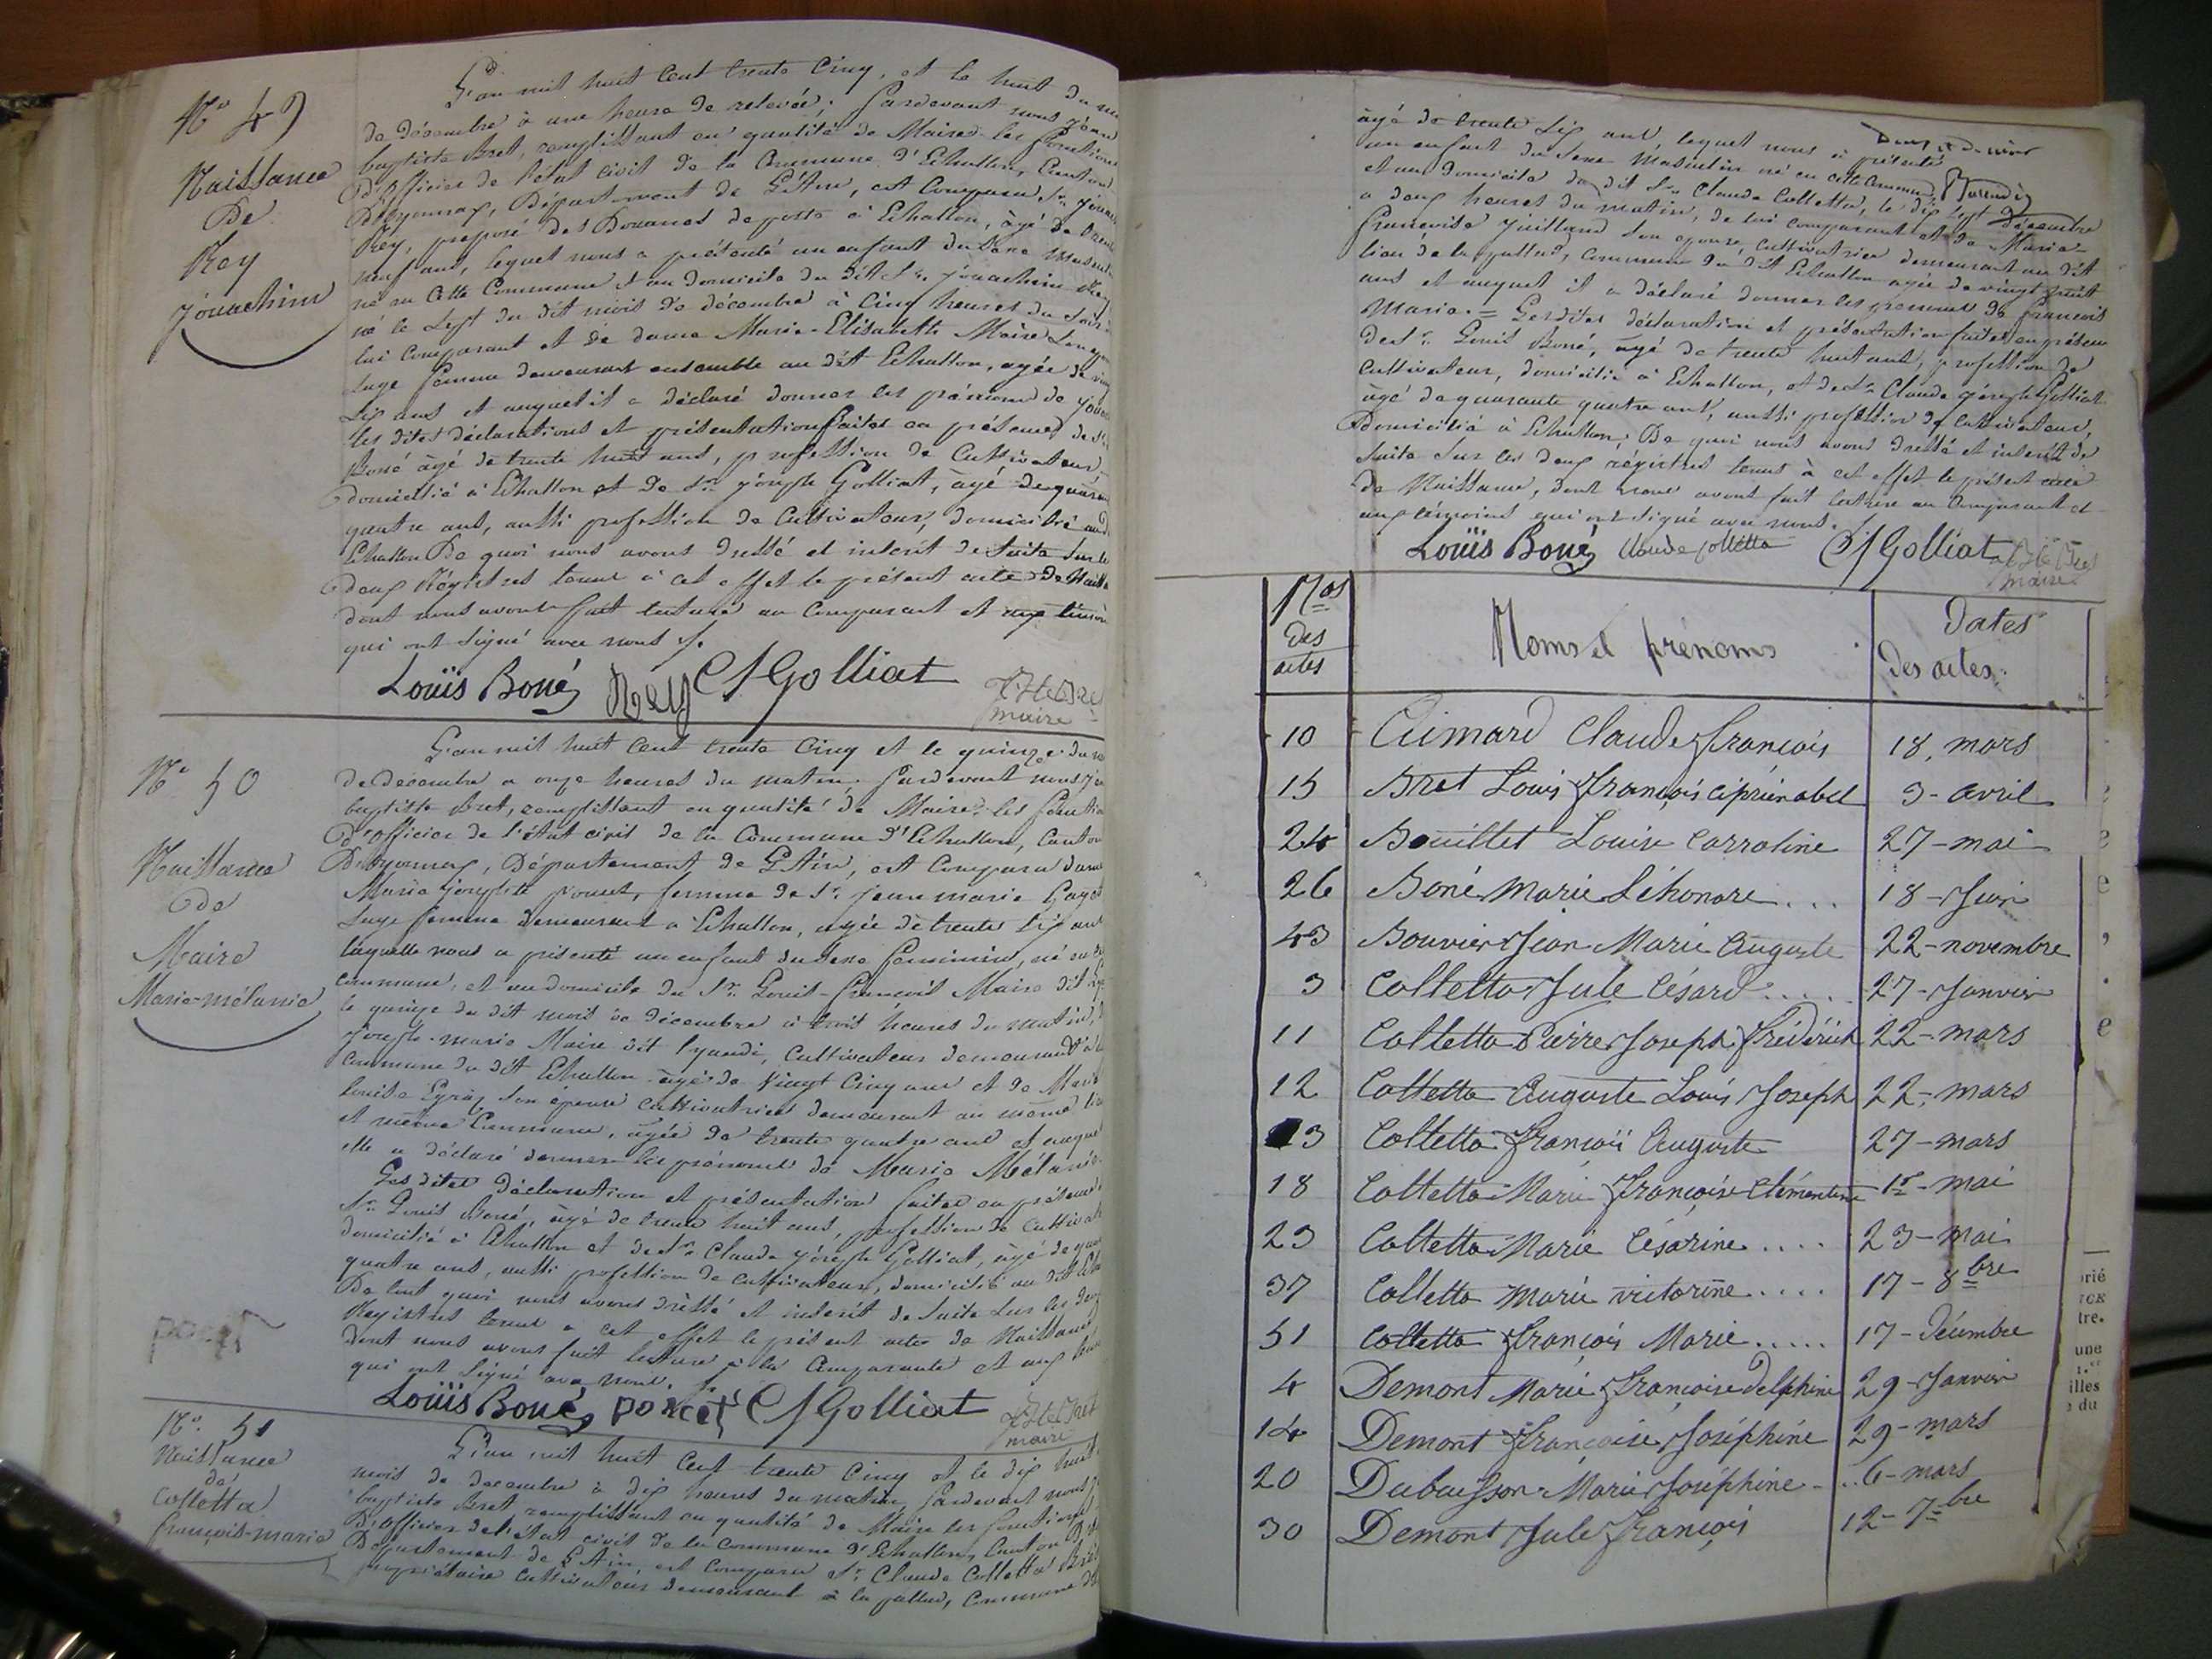 N° 49
Naissance
De
Rey
Jouachim
L'an mil huit Cent trente Cinq, et le huit du
de décembre à une heure de relevée; Pardevant nous Jean
baptiste Bret, remplissant en qualité de Maire les fonctions
D'Officier de l'état civil de la Commune d'Echallon, Canton
D'Oyonnax, Département de L'Ain, est Comparu Sr. Jouachim
Rey, preposé des Douanes de poste à Echallon, âgé de trente
neuf ans, lequel nous a présenté un enfant du Sexe Masculin
né en Cette Commune et au domicile du dit Sr. Jouachim Rey
né le Sept du dit mois de décembre à Cinq heures du Soir de
lui Comparant et de dame Marie-Elisabeth Maire Son
Sage femme demeurant ensemble au dit Echallon, agée de
Six ans et auquel il a déclaré donner les prénoms de
les dites déclarations et présentation faites en présence de Sr.
Boné âgé de trente huit ans, profession de Cultivateur
domicilié à Echallon et de Sr. Joseph Golliat, âgé de quarante
quatre ans, aussi profession de Cultivateur, domicilié au dit
Echallon De quoi nous avons dressé et inscrit de Suite Sur les
deux Régistres tenus à cet effet le présent acte de Naissance
dont nous avons fait lecture au Comparant et aux témoins
qui ont Signé avec nous /.
Louïs Boné Rey CJ Golliat
maire
N° 50
Naissance
de
Maire
Marie-mélanie
L'an mil huit Cent trente Cinq et le quinze du
de décembre a onze heures du matin, Pardevant nous
baptiste Bret, remplissant en qualité de Maire les fonctions
d'Officier de l'état civil de la Commune d'Echallon, Canton
D'Oyonnax, Département de L'Ain, est Comparu dame
Marie Josephte poncet, femme de Sr. Jean marie
Sage femme demeurant à Echallon, agée de trente Six ans
laquelle nous a présenté un enfant du Sexe feminin, né en
Commune, et au domicile du Sr. Louis-françois Maire dit
le quinze du dit mois de décembre à trois heures du matin,
Joseph-marie Maire dit lyaudi, Cultivateur demeurant
Commune du dit Echallon âgé de Vingt Cinq ans et de Marie
louise Son épouse Cultivatrice demeurant au même lieu
et même Commune, âgée de trente quatre ans et auquel
elle a déclaré donner les prénoms de Marie Mélanie
Les dites déclaration et présentation faites en présence
Sr. Louis Boné, âgé de trente huit ans, profession de Cultivateur
domicilié à Echallon et de Sr. Claude Joseph Golliat, âgé de
quatre ans, aussi profession de cultivateur, domicilié au dit
De tout quoi nous avons dressé et inscrit de Suite Sur les deux
Registres tenus a cet effet le présent acte de Naissance
dont nous avons fait lecture à la Comparante et aux
qui ont Signé avec nous.
poncet
Louïs Boné poncet CJ Golliat
maire
N° 51
Naissance
de
Colletta
françois-marie
L'an mil huit Cent trente Cinq et le dix huit
mois de décembre à dix heures du matin, Pardevant nous
baptiste Bret remplissant en qualité de Maire les fonctions
D'Officier de l'état civil de la Commune d'Echallon, Canton
Département de L'Ain, est Comparu Sr. Claude Colletta
propriétaire cultivateur demeurant à la
âgé de trente Six ans lequel nous a présenté
un enfant du Sexe Masculin né en cette Commune
et au domicile du dit Sr. Claude Colletta, le dix Sept décembre
a deux heures du matin, de lui comparant et de Marie
françoise Juilland Son épouse, cultivatrice demeurant au dit
lieu de la Commune du dit Echallon agée de vingt huit
ans et auquel il a déclaré donner les prénoms de françois
Marie. = Lesdites déclaration et présentation faites en présence
de Sr. Louis Boné, âgé de trente huit ans, profession de
Cultivateur, domicilié à Echallon, et de Sr. Claude Joseph Golliat
âgé de quarante quatre ans, aussi profession de cultivateur,
domicilié à Echallon; De quoi nous avons dressé et inscrit de
Suite Sur les deux régistres tenus à cet effet le présent acte
de Naissance, dont nous avons fait lecture au Comparant et
aux témoins qui ont Signé avec nous.
Louïs Boné Claude Colletta CJ Golliat
maire
Nos des actes Noms et prénoms Dates des actes
10 Aimard Claude François 18, mars
15 Bret Louis François abel 3 - avril
24 Bouillet Louise Carroline 27 - mai
26 Boné Marie Léhonore ... 18 - Juin
43 Bouvier Jean Marie Auguste 22 - novembre
3 Colletta Jule César ..... 27 - Janvier
11 Colletta Pierre Joseph Frédérick 22 - mars
12 Colletta Auguste Louis Joseph 22 - mars
13 Colletta François Auguste 27 - mars
18 Colletta Marie Françoise Clémentine 1er - mai
23 Colletta Marie Césarine .... 23 - mai
37 Colletta Marie victorine .... 17 - 8bre
51 Colletta François Marie ..... 17 - Décembre
4 Demont Marie Françoise Delphine 29 - Janvier
14 Demont Françoise Joséphine 29 - mars
20 Dubuisson Marie Joséphine - .. 6 - mars
30 Demont Jule François 12 - 7bre